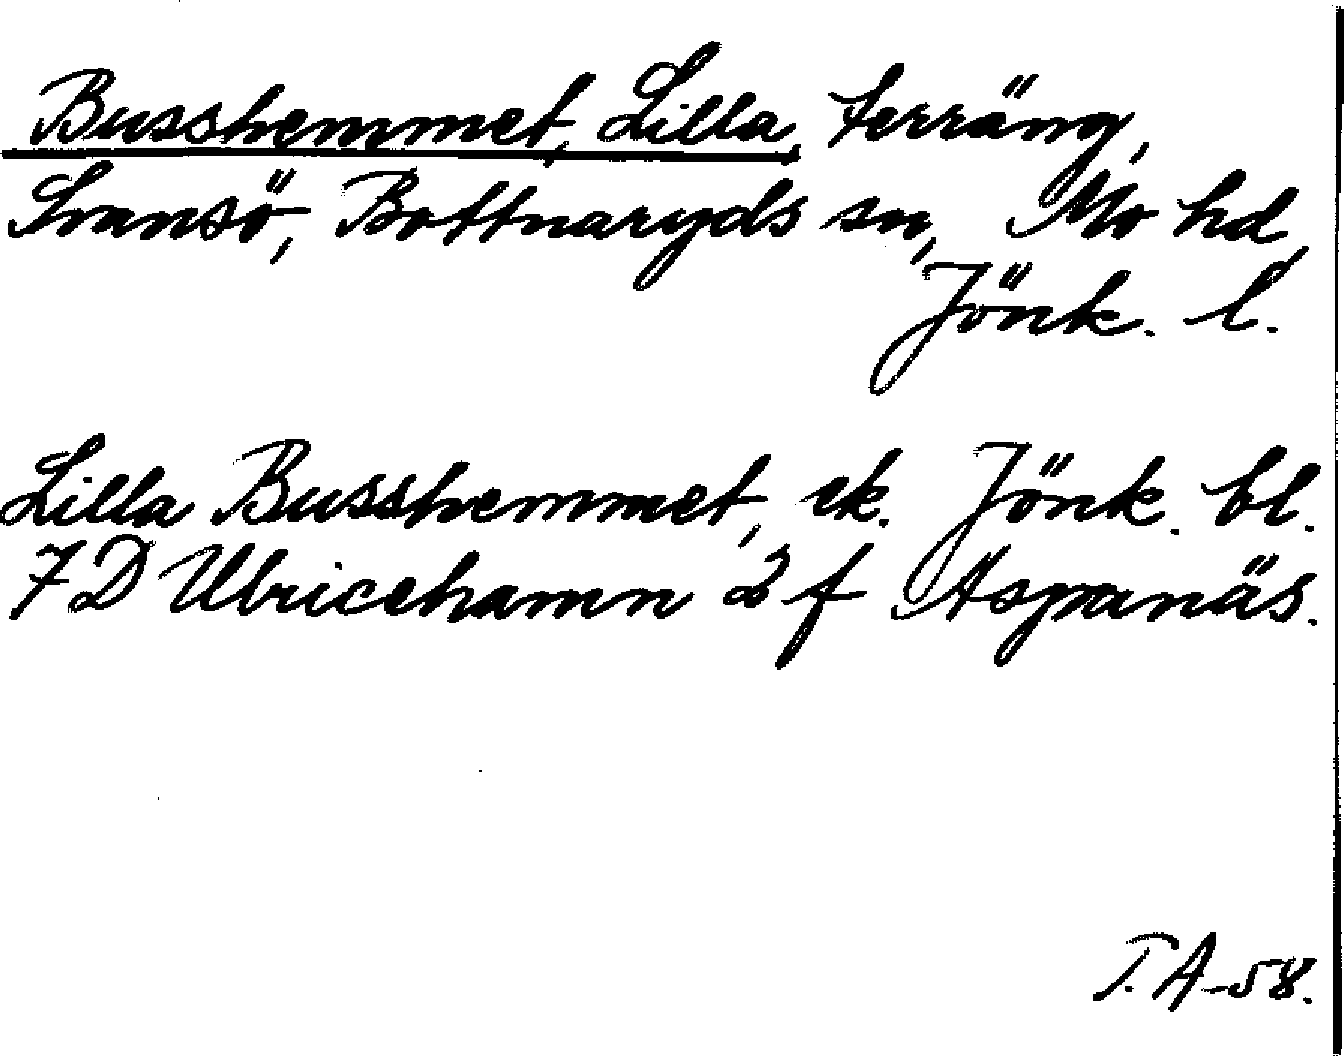 Busshemmet, Lilla, terräng,
Svansö, Bottnaryds sn, Mo hd,
Jönk. l.
Lilla Busshemmet, ek. Jönk. bl.
7 D Ulricehamn 2 f Aspanäs.
T. A-58.